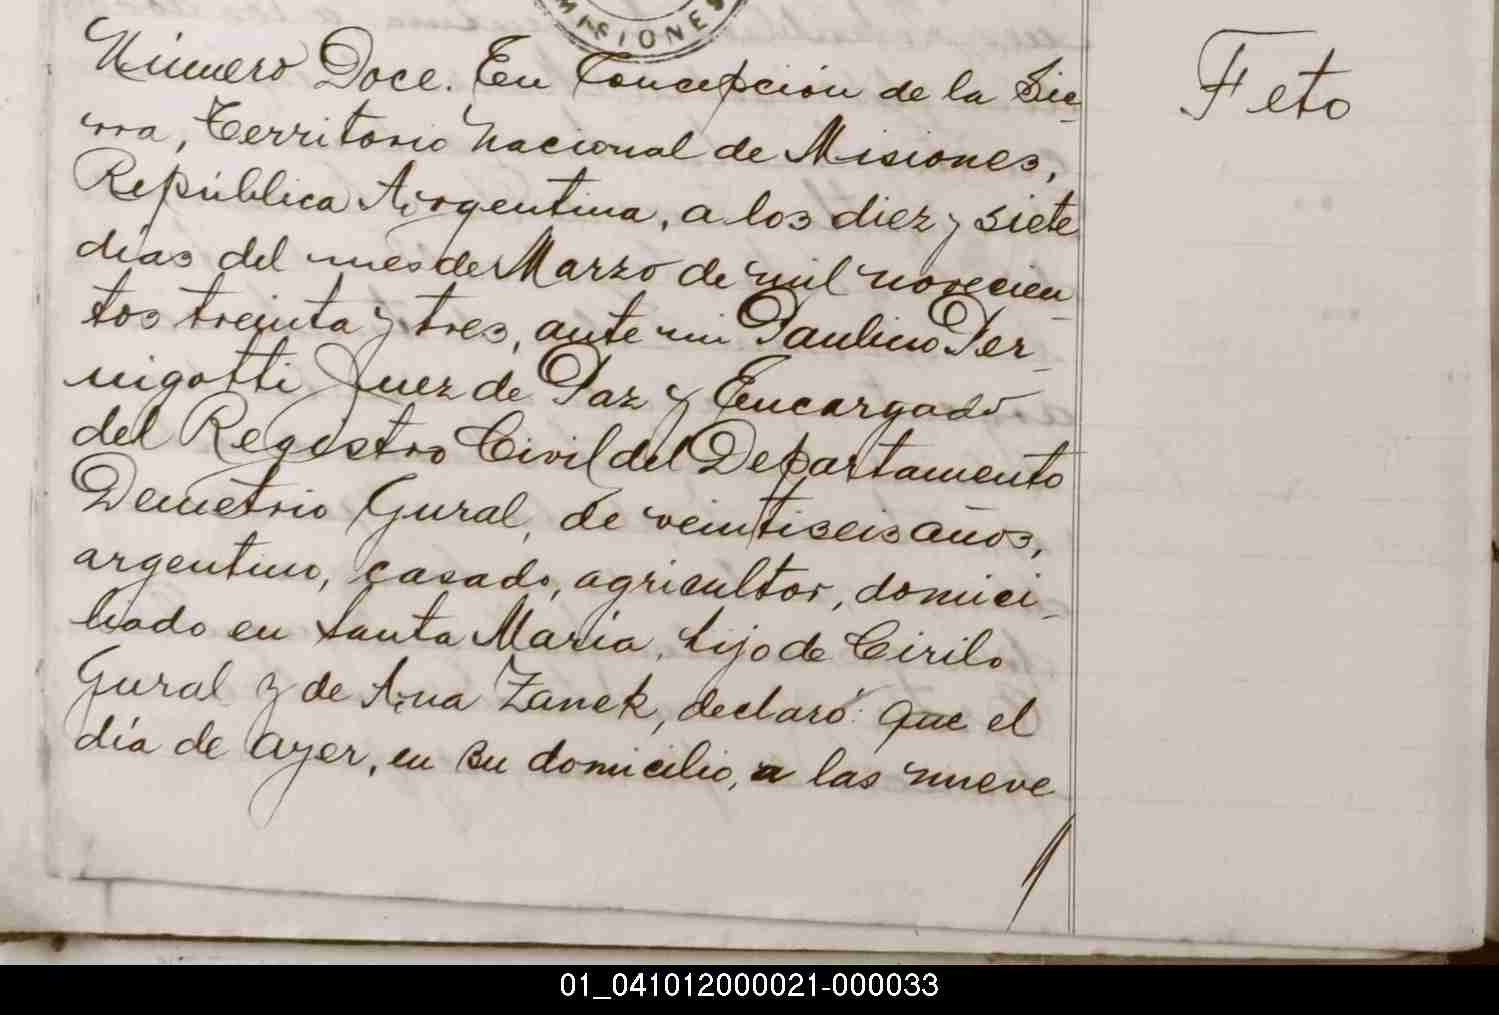 MISIONES
Número Doce. En Concepción de la Sie-
rra, Territorio Nacional de Misiones,
República Argentina, a los diez y siete
días del mes de Marzo de mil novecien-
tos treinta y tres, ante mi Paulino Per-
nigotti Juez de Paz y Encargado
del Registro Civil del Departamento
Demetrio Gural, de veintiseis años,
argentino, casado, agricultor, domici-
liado en Santa María, hijo de Cirilo
Gural y de Ana Zanek, declaró: Que el
día de ayer, en su domicilio, a las nueve
Feto
01_041012000021-000033